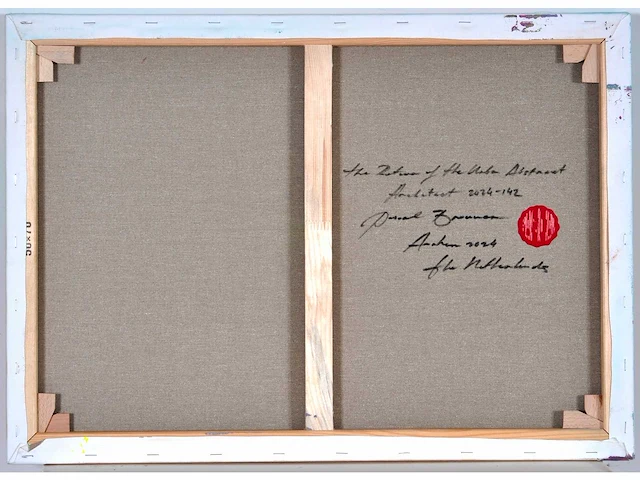 the Return of the Urban Abstract
Architect 2024-142
Arnhem 2024
the Netherlands
50x70